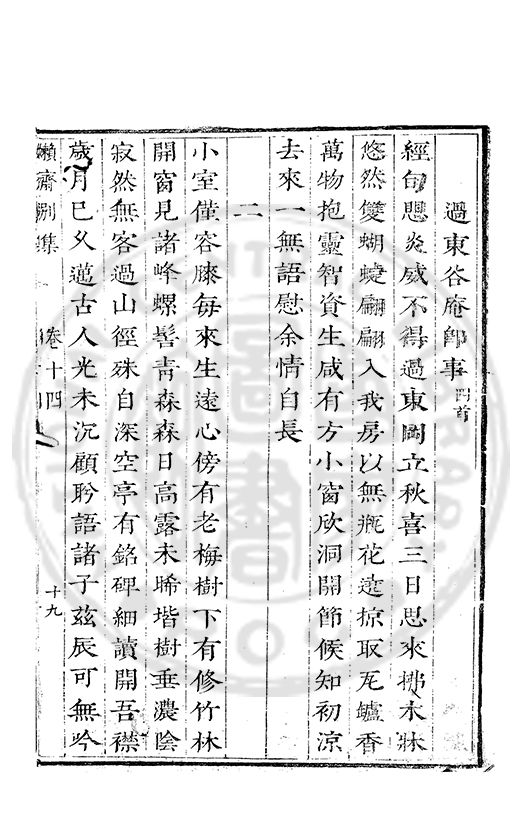 過東谷庵卽事四首
經旬懸炎威不得過東岡立秋喜三日思來拂木牀
悠然雙蝴蜨翩翩入我房以無瓶花遊掠取瓦鑪香
萬物抱靈智資生咸有方小窗欣洞開節候知初涼
去來一無語慰余情自長
二
小室僅容膝每來生遠心傍有老梅樹下有修竹林
開窗見諸峰螺髻靑森森日高露未晞堦樹垂濃陰
寂然無客過山徑殊自深空亭有銘碑細讀開吾襟
歲月已夂邁古人光未沉顧聆語諸子茲辰可無吟
嬾齋別集
卷十四
十九